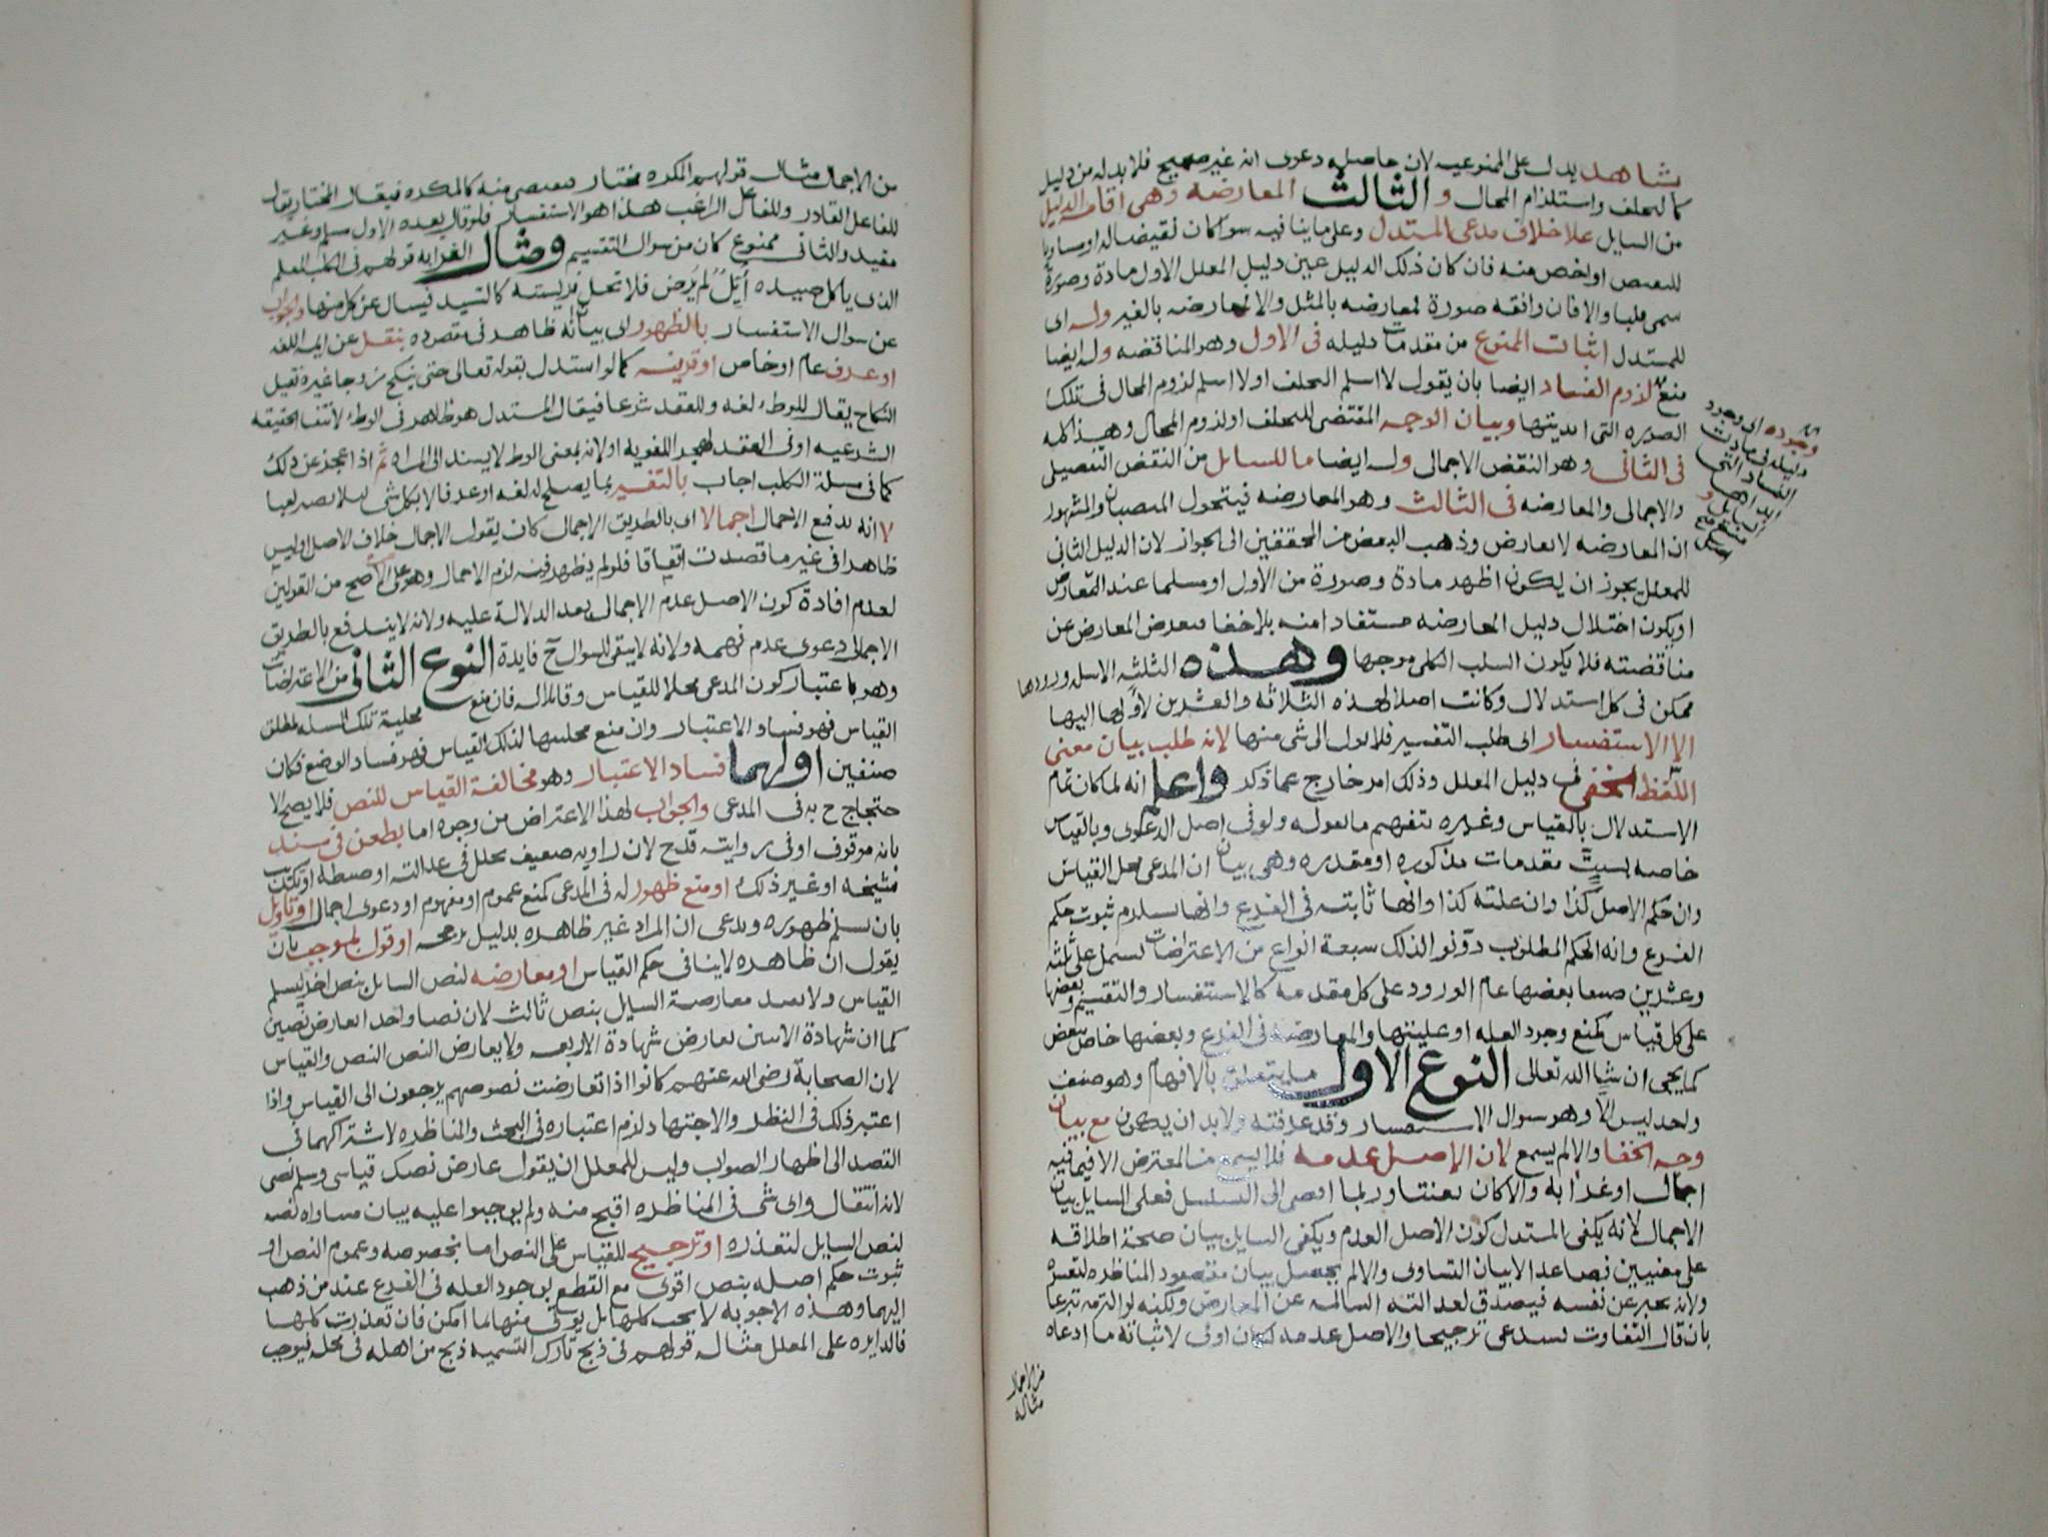 بشاهد يدل على الممنوعيه لان حاصله دعوى انه غير صحيح فلا بد له من دليل
كالتخلف واستلزام المحال والثالث المعارضه وهى اقامه الدليل
من السايل علا خلاف مدعى المستدل وعلى ما ينافيه سوا كان نقيضا له او مساويا
للنقيض او اخص منه فان كان ذلك الدليل عين دليل المعلل الاول مادة وصورة
سمى قلبا والا فان وافقه صورة فمعارضه بالمثل والا فمعارضه بالغير وله اى
للمستدل اثبات الممنوع من مقدمات دليله فى الاول وهو المناقضه وله ايضا
منع لزوم الفساد ايضا بان يقول لا اسلم التخلف او لا اسلم لزوم المحال فى تلك
الصوره التى ابديتها وبيان الوجه المقتضى للتخلف او لزوم المحال وهذا كله
فى الثانى وهو النقض الاجمالى وله ايضا ما للسايل من النقض التفصيلى
والاجمالى والمعارضه فى الثالث وهو المعارضه فيتحول المنصبان والمشهور
ان المعارضه لا تعارض وذهب البعض من المحققين الى الجواز لان الدليل الثانى
للمعلل يجوز ان يكون اظهر مادة وصورة من الاول او مسلما عند المعارض
او يكون اختلال دليل المعارضه مستفادا منه بلا خفا فيعرض المعارض عن
مناقضته فلا يكون السلب الكلى موجها وهذه الثلثه الاسله ورودها
ممكن فى كل استدلال وكانت اصلا لهذه الثلاثه والعشرين لأولها اليها
الا الاستفسار اى طلب التفسير فلا يول الى شى منها لانه طلب بيان معنى
اللفظ الخفى فى دليل المعلل وذلك امر خارج عما ذكر واعلم انه لما كان تمام
الاستدلال بالقياس وغيره بتفهيم ما يقوله ولو فى اصل الدعوى وبالقياس
خاصه بست مقدمات مذكوره او مقدره وهى بيان ان المدعى محل القياس
وان حكم الاصل كذا وان علته كذا وانها ثابته فى الفرع وانها تستلزم ثبوت حكم
الفرع وانه الحكم المطلوب دوّنوا لذلك سبعة انواع من الاعتراضات تشمل على ثلثه
وعشرين صنفا بعضها عام الورود على كل مقدمه كالاستفسار والتقسيم وبعضها
على كل قياس كمنع وجود العله او عليتها والمعارضه فى الفرع وبعضها خاص ببعض
كما يجى ان شا الله تعالى النوع الاول ما يتعلق بالافهام وهو صنف
واحد ليس الا وهو سوال الاستفسار وقد عرفته ولا بد ان يكون مع بيان
وجه الخفا والا لم يسمع لان الاصل عدمه فلا يسمع من المعترض الا فيما فيه
اجمال او غرابه والا كان تعنتا وربما افضى الى التسلسل فعلى السايل بيان
الاجمال لانه يكفى المستدل كون الاصل العدم ويكفى السايل بيان صحة اطلاقه
على معنيين فصاعدا لا بيان التساوى والا لم يحصل بيان مقصود المناظره لتعسره
ولانه يخبر عن نفسه فيصدق لعدالته السالمه عن المعارض ولكنه لو التزمه تبرعا
بان قال التفاوت يستدعى ترجيحا والاصل عدمه لكان اولى لاثباته ما ادعاه
من الاجمال
مثاله
من الاجمال مثاله قولهم المكره مختار فيقتص منه كالمكره فيقال المختار يقال
للفاعل القادر وللفاعل الراغب هذا هو الاستفسار فلو قال بعده الاول مسلم وغير
مفيد والثانى ممنوع كان من سوال التقسيم ومثال الغرابه قولهم فى الكلب المعلم
الذى ياكل صيده أُيّل لم يُرَض فلا تحل فريسته كالسيد فيسال عن كل منها والجواب
عن سوال الاستفسار بالظهور اى بيانه ظاهر فى مقصوده بنقل عن ايمه اللغه
او عرف عام او خاص او قرينه كما لو استدل بقوله تعالى حتى ينكح زوجا غيره فقيل
النكاح يقال للوطء لغه وللعقد شرعا فيقال المستدل هو ظاهر فى الوطء لانتفا الحقيقه
الشرعيه او فى العقد لهجر اللغويه او لانه بمعنى الوطء لا يسند الى المراه ثم اذا عجز عن ذلك
كما فى مسلة الكلب اجاب بالتفسير بما يصلح له لغه او عرفا لا بكل شى ليلا يصير لعبا
لا انه يدفع الاجمال اجمالا اى بالطريق الاجمالى كان يقول الاجمال خلاف الاصل وليس
ظاهرا فى غير ما قصدت اتفاقا فلو لم يظهر فيه لزم الاجمال وهو على الاصح من القولين
لعدم افادة كون الاصل عدم الاجمال بعد الدلالة عليه ولانه لا يندفع بالطريق
الاجمالى دعوى عدم فهمه ولانه لا يبقى للسوال ح فايدة النوع الثانى من الاعتراضات
وهو باعتبار كون المدعى محلا للقياس وقابلا له فان منع محلية تلك المسله لمطلق
القياس فهو فساد الاعتبار وان منع محليتها لذلك القياس فهو فساد الوضع فكان
صنفين اولهما فساد الاعتبار وهو مخالفة القياس للنص فلا يصح الا
حتجاج ح به فى المدعى والجواب لهذا الاعتراض من وجوه اما بطعن فى سند
بانه موقوف او فى روايته قدح لان راويه ضعيف بخلل فى عدالته او ضبطه او تكذيب
شيخه او غير ذلك او منع ظهور له فى المدعى كمنع عموم او مفهوم او دعوى اجمال او تاويل
بان يسلم ظهوره ويدعى ان المراد غير ظاهره بدليل يرجحه او قول بالموجب بان
يقول ان ظاهره لا ينافى حكم القياس او معارضه لنص السايل بنص اخر ليسلم
القياس ولا يفيد معارضة السايل بنص ثالث لان نصا واحدا يعارض نصين
كما ان شهادة الاثنين تعارض شهادة الاربعه ولا يعارض النص النص والقياس
لان الصحابة رضى الله عنهم كانوا اذا تعارضت نصوصهم يرجعون الى القياس واذا
اعتبر ذلك فى النظر والاجتهاد لزم اعتباره فى البحث والمناظره لاشتراكهما فى
القصد الى اظهار الصواب وليس للمعلل ان يقول عارض نصك قياسى وسلم نصى
لانه انتقال واى شى فى المناظره اقبح منه ولم يوجبوا عليه بيان مساواه نصه
لنص السايل لتعذره او ترجيح للقياس على النص اما بخصوصه وعموم النص او
ثبوت حكم اصله بنص اقوى مع القطع بوجود العله فى الفرع عند من ذهب
اليهما وهذه الاجوبه لا يجب كلها بل يوتى منها بما امكن فان تعذرت كلها
فالدايره على المعلل مثاله قولهم فى ذبح تارك التسميه ذبح من اهله فى محله فيوجب